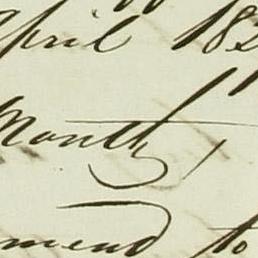 April 182
Month,
mend to